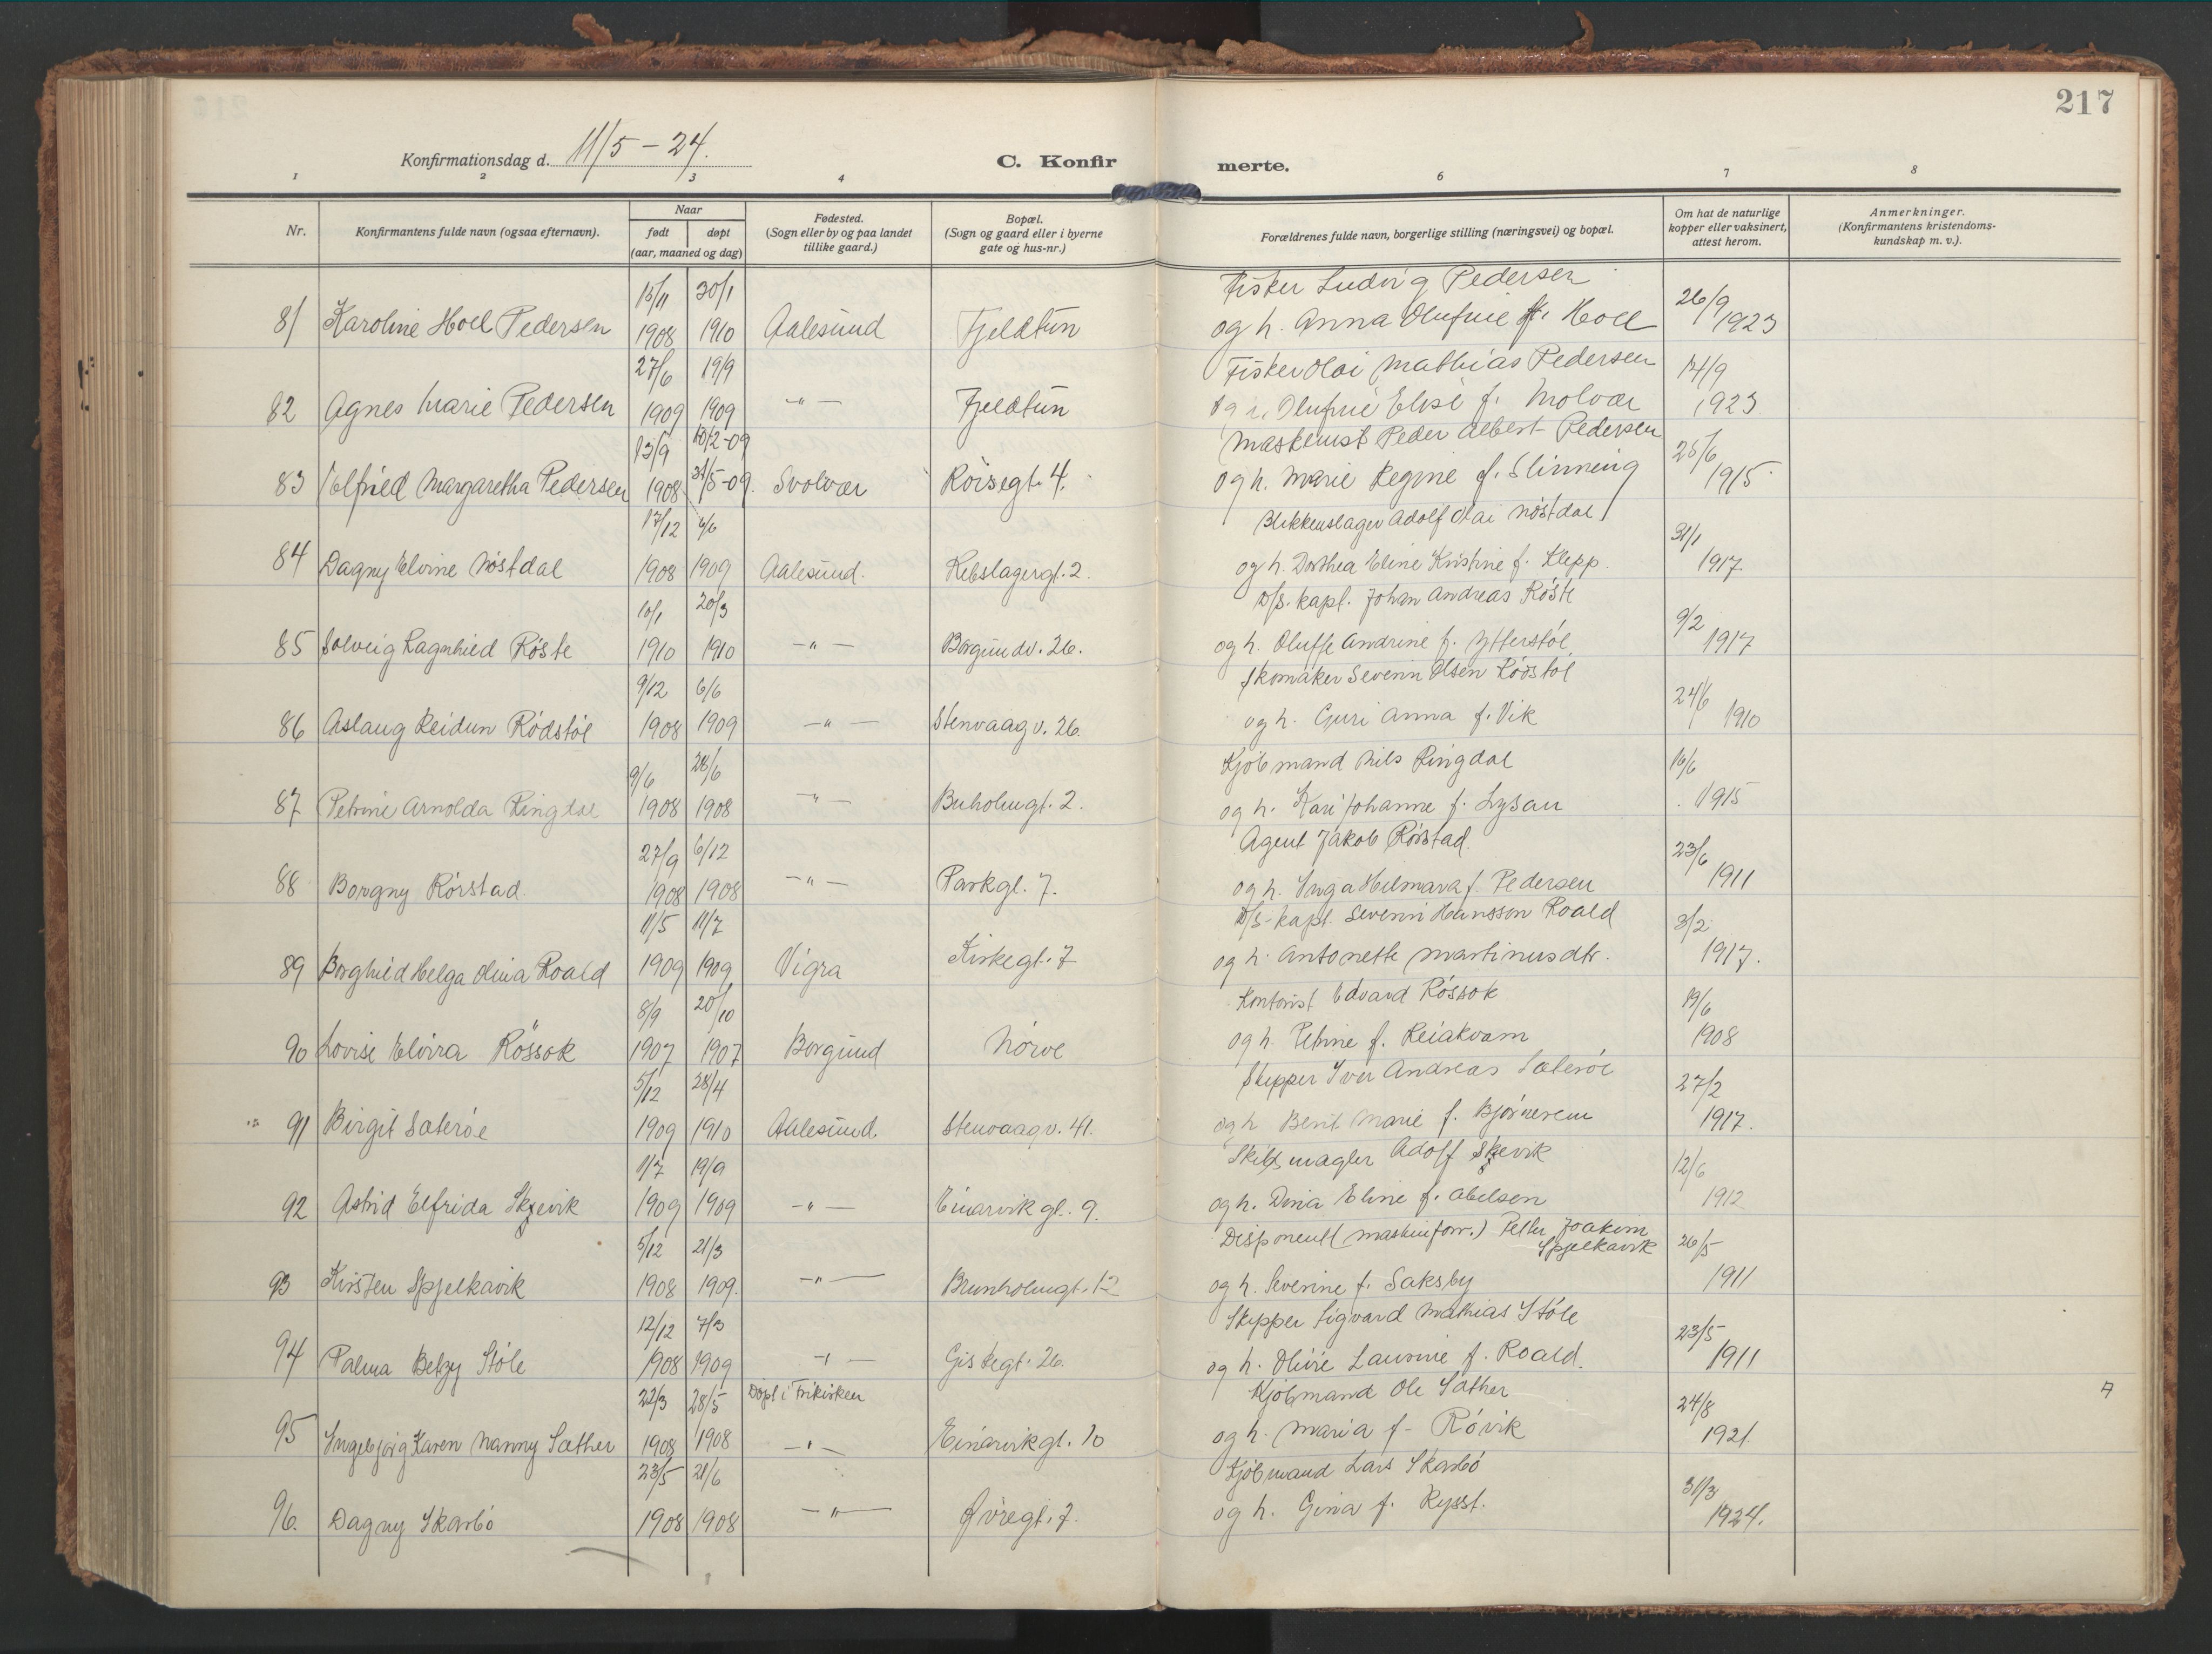 217
Konfirmationsdag d. 11/5 - 24.
C. Konfir merte.
1 2 3 4 6 7 8
Nr. Konfirmantens fulde navn (ogsaa efternavn). Naar født døpt (aar, maaned og dag) Fødested. (Sogn eller by og paa landet tillike gaard.) Bopæl. (Sogn og gaard eller i byerne gate og hus-nr.) Forældrenes fulde navn, borgerlige stilling (næringsvei) og bopæl. Om hat de naturlige kopper eller vaksinert, attest herom. Anmerkninger. (Konfirmantens kristendoms-kundskap m. v.).
15/11 30/1 Fisker Ludvig Pedersen 26/9
81 Karoline Hoel Pedersen 1908 1910 Aalesund Fjeldtun og h. Anna Olufine f. Hoel 1923
27/6 19/9 Fisker Olai Mathias Pedersen 14/9
82 Agnes Marie Pedersen 1909 1909 -"- Fjeldtun og h. Olufine Elise f. Molvær 1923
13/9 10/2-09 Maskinist Peder Albert Pedersen 25/6
83 Elfried Margaretha Pedersen 1908 31/5-09. Svolvær Röisegt. 4. og h. Marie Regine f. Slinning 1915
17/12 4/6 Blikkenslager Adolf Olai Nöstdal 31/1
84 Dagny Elvine Nöstdal 1908 1909 Aalesund. Rebslagergt. 2. og h. Dorthea Eline Kristine f. Klepp. 1917.
10/1 20/3 D/S. kapt. Johan Andreas Röste 9/2
85 Solveig Ragnhild Röste 1910 1910 -"- Borgundv. 26. og h. Oluffe Andrine f. Ytterstöl, 1917
9/12 6/6 Skomaker Severin Olsen Rödstöl 24/6
86 Aslaug Reidun Rödstöl 1908 1909 -"- Stenvaagv. 26. og h. Guri Anna f. Vik 1910
9/6 28/6 Kjöbmand Nils Ringdal 16/6
87 Petrine Arnolda Ringdal 1908 1908 -"- Buholmgt. 2. og h. Kari Johanne f. Lysan 1915
27/9 6/12 Agent Jakob Rörstad. 23/6
88 Borgny Rörstad. 1908 1908 -"- Parkgt. 7. og h. Inga Helmara f. Pedersen 1911
11/5 11/7 D/S-kapt. Severin Hansson Roald 3/2
89 Borghild Helga Olina Roald 1909 1909 Vigra Kirkegt. 7 og h. Antonette Martinusdtr. 1917.
8/9 20/10 Kontorist Edvard Rössok 19/6
90 Lovise Elvira Rössok 1907 1907 Borgund Nörve og h. Petrine f. Reiakvam 1908
5/12 28/4 Skipper Iver Andreas Säteröe 27/2
91 Birgit Säteröe 1909 1910 Aalesund. Stenvaagv. 41. og h. Berit Marie f. Bjørnerem 1917.
11/7 19/9 Skibsmægler Adolf Skevik 12/6
92 Astrid Elfrida Skjevik 1909 1909 -"- Einarvikgt. 9. og h. Dina Eline f. Abelsen 1912
5/12 21/3 Disponent (maskinforr.) Petter Joakim Spjelkavik 26/5
93 Kirsten Spjelkavik 1908 1909. -"- Brunholmgt. 12 og h. Severine f. Saksby 1911
12/12 7/3 Skipper Sigvard Mathias Støle 23/5
94 Palma Betzy Støle 1908 1909 -"- Giskegt. 26. og h. Olivie Laurine f. Roald. 1911
22/3 28/5 Döpt i Frikirken Kjöbmand Ole Sæther 24/8
95 Ingebjørg Karen Nanny Sæther 1908 1908 -"- Einarvikgt. 10 og h. Maria f. Rövik 1921
23/5 21/6 Kjöbmand Lars Skarbö 31/3
96. Dagny Skarbö 1908 1908 -"- Øvregt. 7. og h. Gina f. Rysst. 1924.